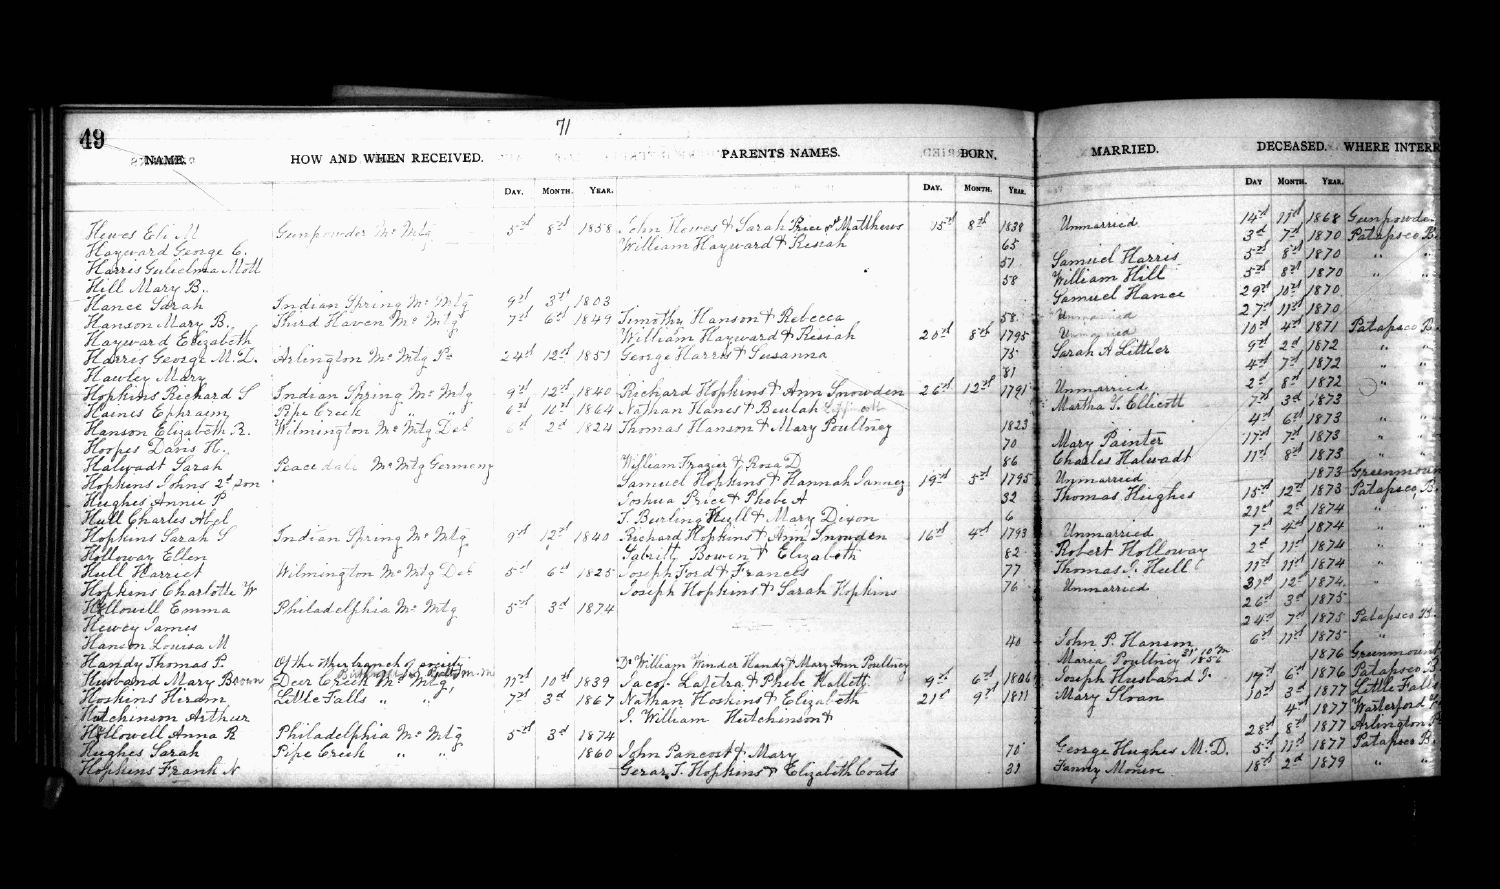 49
71
NAME. HOW AND WHEN RECEIVED. PARENTS NAMES. BORN. MARRIED. DECEASED. WHERE INTERR
DAY. MONTH. YEAR. DAY. MONTH. YEAR. DAY MONTH. YEAR.
Hewes Eli M Gunpowder Mo Mtg 5th 8th 1858 John Hewes & Sarah Price Matthews 15th 8th 1838 Unmarried 14th 11th 1868 Gunpowde
Hayward George C. William Hayward & Kesiah 65 3d 7th 1870 Patapsco B.
Harris Gulielma Mott 57 Samuel Harris 5th 8th 1870 " "
Hill Mary B. 58 William Hill 5th 8th 1870 " "
Hance Sarah Indian Spring Mo Mtg 9th 3d 1803 Samuel Hance 29th 10th 1870
Hanson Mary B. Third Haven Mo Mtg 7th 6th 1849 Timothy Hanson & Rebecca 58 Unmarried 27th 11th 1870
Hayward Elizabeth William Hayward & Kesiah 20th 8th 1795 Unmarried 10th 4th 1871 Patapsco B.
Harris George M.D. Arlington Mo Mtg Pa 24th 12th 1851 George Harris & Susanna 75 Sarah A Littler 9th 2d 1872 " "
Hawley Mary 81 4th 7th 1872 " "
Hopkins Richard S Indian Spring Mo Mtg 9th 12th 1840 Richard Hopkins & Ann Snowden 26th 12th 1791 Unmarried 2d 8th 1872 " "
Haines Ephraim Pipe Creek " " 6th 10th 1864 Nathan Hanes & Beulah Martha T. Ellicott 7th 3d 1873
Hanson Elizabeth R. Wilmington Mo Mtg Del 6th 2d 1824 Thomas Hanson & Mary Poultney 1823 4th 6th 1873 " "
Hoopes Davis H. 70 Mary Painter 17th 7th 1873 " "
Halwadt Sarah Peacedale Mo Mtg Germany William Frazier & Rosa D 86 Charles Halwadt 11th 8th 1873 " "
Hopkins Johns 2d son Samuel Hopkins & Hannah Janney 19th 5th 1795 Unmarried 1873 Greenmoun
Hughes Annie P Joshua Price & Phebe A 32 Thomas Hughes 15th 12th 1873 Patapsco B.
Hull Charles Abel T. Burling Hull & Mary Dixon 6 21st 2d 1874 " "
Hopkins Sarah S Indian Spring Mo Mtg 9th 12th 1840 Richard Hopkins & Ann Snowden 16th 4th 1793 Unmarried 7th 4th 1874 " "
Holloway Ellen Bowen & Elizabeth 82 Robert Holloway 2d 11th 1874 " "
Hull Harriet Wilmington Mo Mtg Del 5th 6th 1825 Joseph Ford & Frances 77 Thomas I. Hull 11th 11th 1874 " "
Hopkins Charlotte W Joseph Hopkins & Sarah Hopkins 76 Unmarried 31st 12th 1874 " "
Hallowell Emma Philadelphia Mo Mtg 5th 3d 1874 26th 3d 1875
Hewey James 24th 7th 1875 Patapsco B.
Hanson Louisa M 40 John P. Hanson 6th 11th 1875 "
Handy Thomas P. Of the other branch of society Dr William Winder Handy & Mary Ann Poultney Maria Poultney 1856 1876 Greenmount
Husband Mary Brown Deer Creek Mo Mtg 11th 10th 1839 Jacob Lafetra & Phebe Hallett 9th 6th 1806 Joseph Husband Jr 17th 6th 1876 Patapsco B
Hoskins Hiram Little Falls " " 7th 3d 1867 Nathan Hoskins & Elizabeth 21st 9th 1811 Mary Sloan 10th 3d 1877 Little Falls
Hutchinson Arthur J. William Hutchinson & 4th 1877 Waterford
Hallowell Anna R Philadelphia Mo Mtg 5th 3d 1874 28th 8th 1877 Arlington
Hughes Sarah Pipe Creek " " 1860 John Pancost & Mary 70 George Hughes M.D. 5th 11th 1877 Patapsco B.
Hopkins Frank N Gerar. T. Hopkins & Elizabeth Coats 31 Fanny Monroe 18th 2d 1879 " "